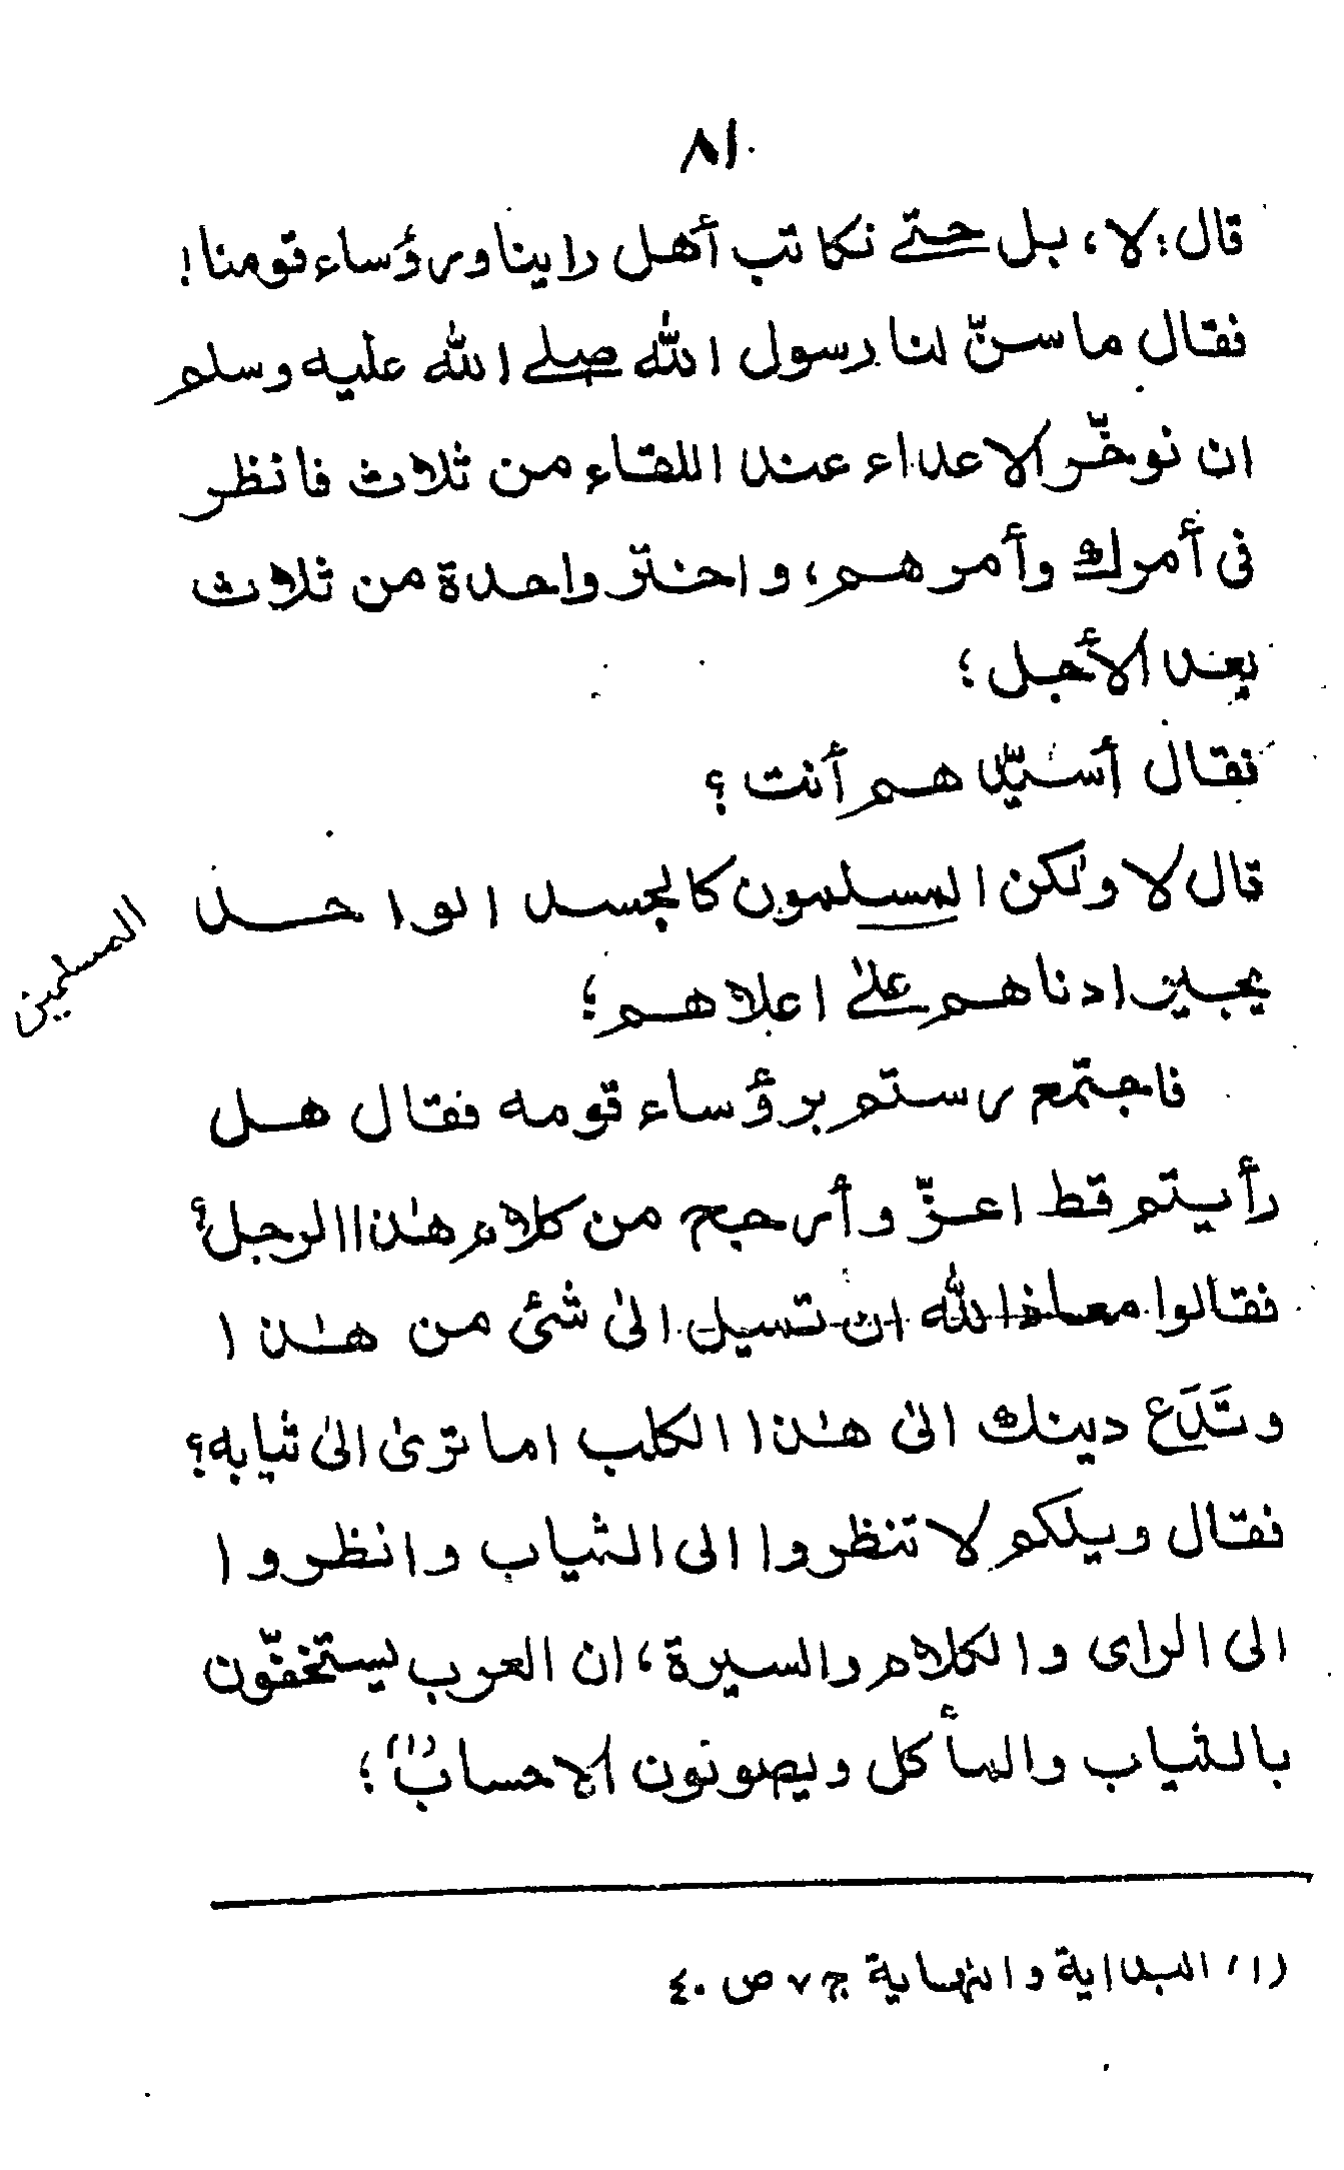 ٨١
قال: لا، بل حتى نكاتب أهل راينا ورؤساء قومنا!
فقال ما سنّ لنا رسول الله صلى الله عليه وسلم
ان نوخّر الاعداء عند اللقاء من ثلاث فانظر
فى أمرك وأمرهم، واختر واحدة من ثلاث
بعد الأجل؛
فقال أسيّدهم أنت؟
قال لا ولٰكن المسلمون كالجسد الواحد
المسلمين
يجيز ادناهم علىٰ اعلاهم؛
فاجتمع رستم برؤساء قومه فقال هل
رأيتم قط اعزّ وأرجح من كلام هٰذا الرجل؟
فقالوا معاذ الله ان تسيل الىٰ شئ من هٰذا
وتَدَع دينك الىٰ هٰذا الكلب اما ترىٰ الىٰ ثيابه؟
فقال ويلكم لا تنظروا الى الثياب وانظروا
الى الراى والكلام والسيرة، ان العرب يستخفّون
بالثياب والمأكل ويصونون الاحساب(١)؛
(١) البداية والنهاية ج ٧ ص ٤٠